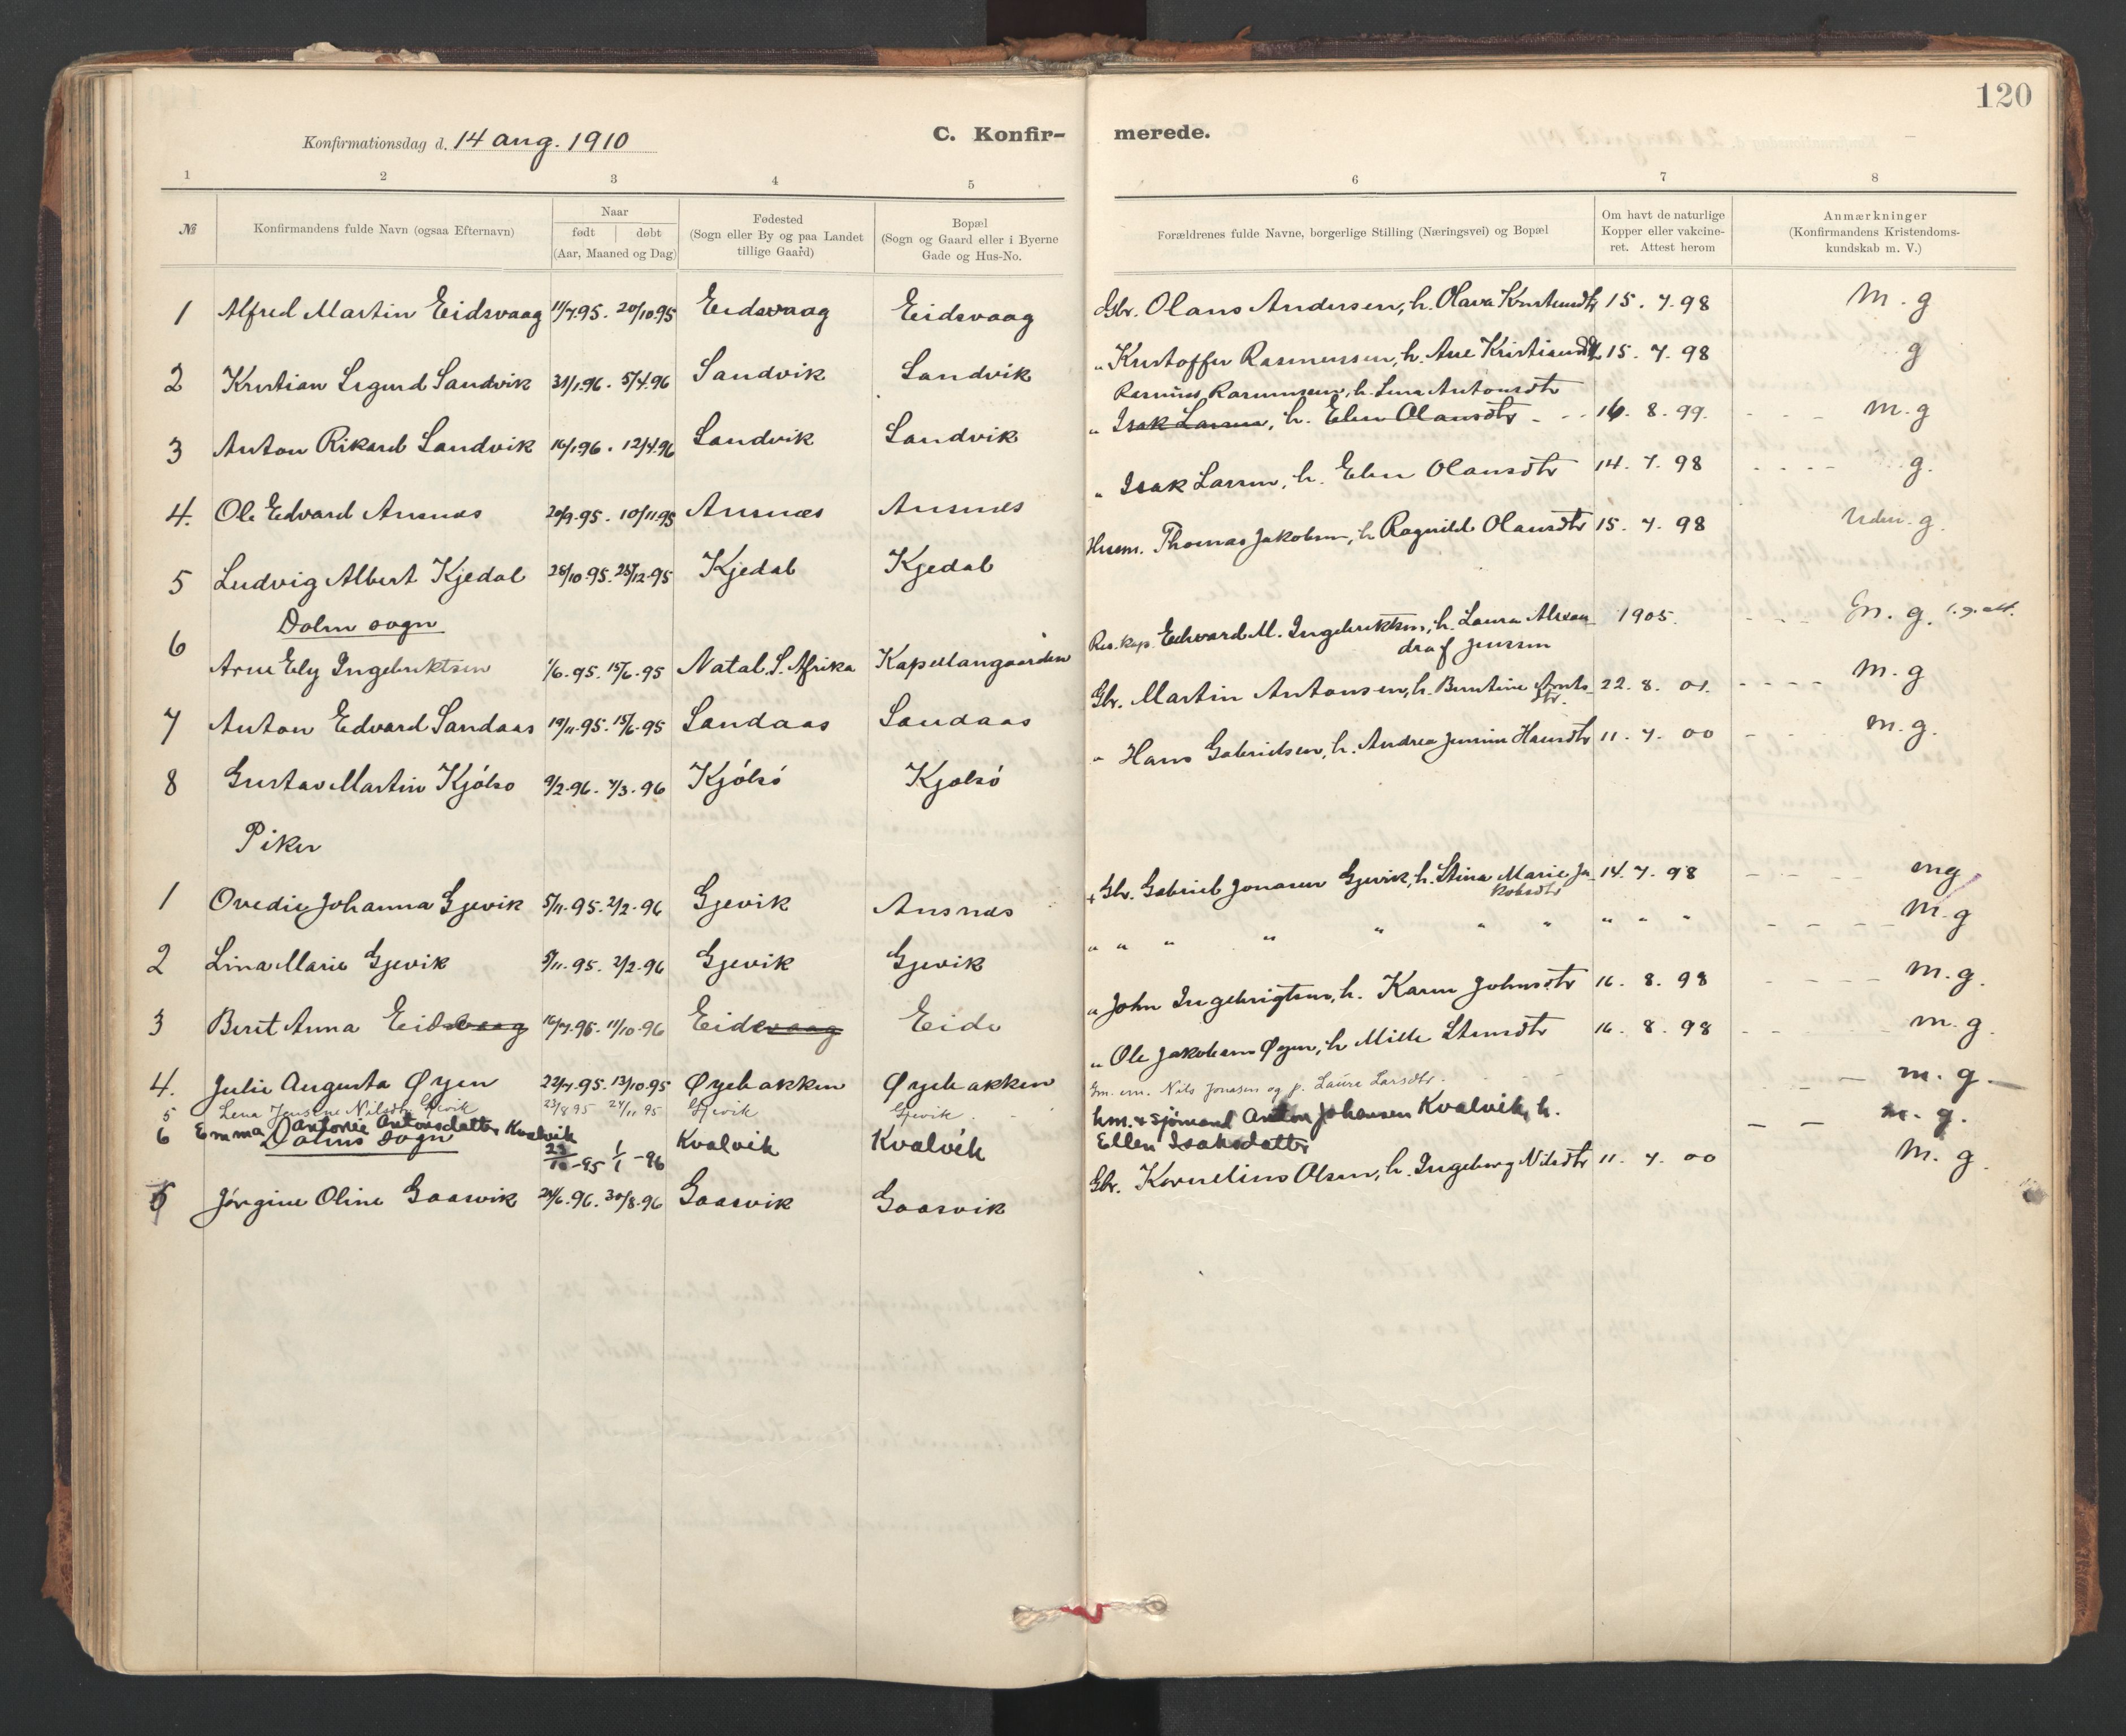 120
Konfirmationsdag d. 14 aug. 1910
C. Konfir- merede.
1 2 3 4 5 6 7 8
№ Konfirmandens fulde Navn (ogsaa Efternavn) Naar født døbt (Aar, Maaned og Dag) Fødested (Sogn eller By og paa Landet tillige Gaard) Bopæl (Sogn og Gaard eller i Byerne Gade og Hus-No. Forældrenes fulde Navne, borgerlige Stilling (Næringsvei) og Bopæl Om havt de naturlige Kopper eller vakcineret. Attest herom Anmærkninger (Konfirmandens Kristendomskundskab m. V.)
1 Alfred Martin Eidsvaag 11/7.95. 20/10.95 Eidsvaag Eidsvaag Gbr. Olaus Andersen, h. Olava 15. 7. 98 M. g
2 Kristian Sigurd Sandvik 31/1.96. 5/4.96 Sandvik Sandvik " Kristoffer Rasmussen, h. Ane 15. 7. 98 g
Rasmus Rasmussen, h. Lina Antonsdtr
3 Anton Rikard Sandvik 16/1.96. 12/4.96 Sandvik Sandvik " Isak Larsen, h. Elen Olausdtr - - - 16. 8. 99. - - - m. g
4. Ole Edvard Ansnæs 20/9.95. 10/11.95 Ansnæs Ansnes " Isak Larsen, h. Elen Olausdtr 14. 7. 98 - - - - g.
5 Ludvig Albert Kjedal 28/10.95. 25/12.95 Kjedal Kjedal Husm. Thomas Jakobsen, h. Ragnild Olausdtr 15. 7. 98 Uden. g.
Dolm sogn
6 Arne Ely Ingebriktsen 1/6.95. 15/6.95 Natal. S. Afrika Kapellangaarden Res. kap. Edvard M. Ingebriktsen, h. Laura Alexandra f Jensen 1905. - - - M. g.
7 Anton Edvard Sandaas 19/11.95. 15/6.95 Sandaas Sandaas Gbr. Martin Antonsen, h. Berntine Arntsdtr. 22. 8. 01. - - - - M. g
8 Gustav Martin Kjólsó 9/2.96. 7/3.96 Kjólsó Kjolsó " Hans Gabrielsen, h. Andrea Jensine Hansdtr 11. 7. 00 - - - m. g.
Piker
1 Ovedie Johanna Gjevik 5/11.95. 2/2.96 Gjevik Ansnæs + Gbr. Gabriel Jonasen Gjevik, h. Stina Marie Jakobsdtr 14. 7. 98 - - - - mg
2 Lina Marie Gjevik 5/11.95. 2/2.96 Gjevik Gjevik " " " " " " " " " " - - - - M. g
3 Berit Anna Eidsvaag 16/7.96. 11/10.96 Eidsvaag Eide " John Ingebrigtsen, h. Karen Johnsdtr 16. 8. 98 - - - - m. g.
4. Julie Augusta Øyen 22/7.95. 13/10.95 Øyebakken Øyebakken " Ole Jakobsen Øyen, h Mille 16. 8. 98 - - - - m. g.
5 Lena Jensine Nilsdtr Gjevik 23/8 95 24/11 95 Gjevik Gjevik Gm. em. Nils Jonasen og p. Laure Larsdtr. - m. g.
6 Emma Antonie Antonsdatter Kvalvik 23/10-95 1/1-96 Kvalvik Kvalvik hm. & sjömand Anton Johansen Kvalvik, h. Ellen Isaksdatter - - m. g.
Dolms sogn
7 Jórgine Oline Gaasvik 20/6.96. 30/8.96 Gaasvik Gaasvik Gbr. Kornelius Olsen, h. Ingeborg Nilsdtr 11. 7. 00 M. g.